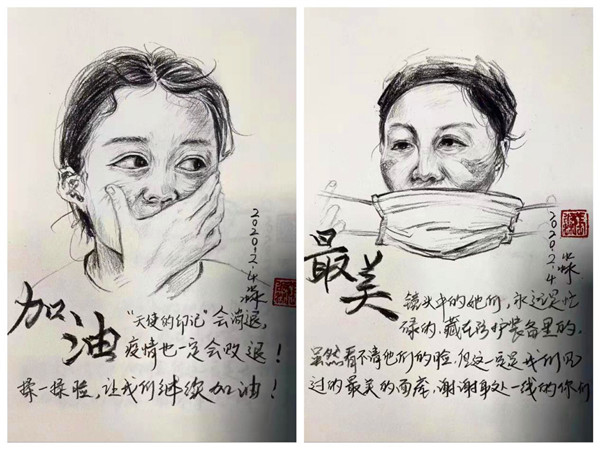 2020.2.4
加油
“天使的印记”会消退，
疫情也一定会败退！
揉一揉脸，让我们继续加油！
2020.2.4
最美
镜头中的她们，永远是忙
碌的、藏在防护装备里的。
虽然看不清他们的脸，但这一定是我们见
过的最美的面容，谢谢身处一线的你们